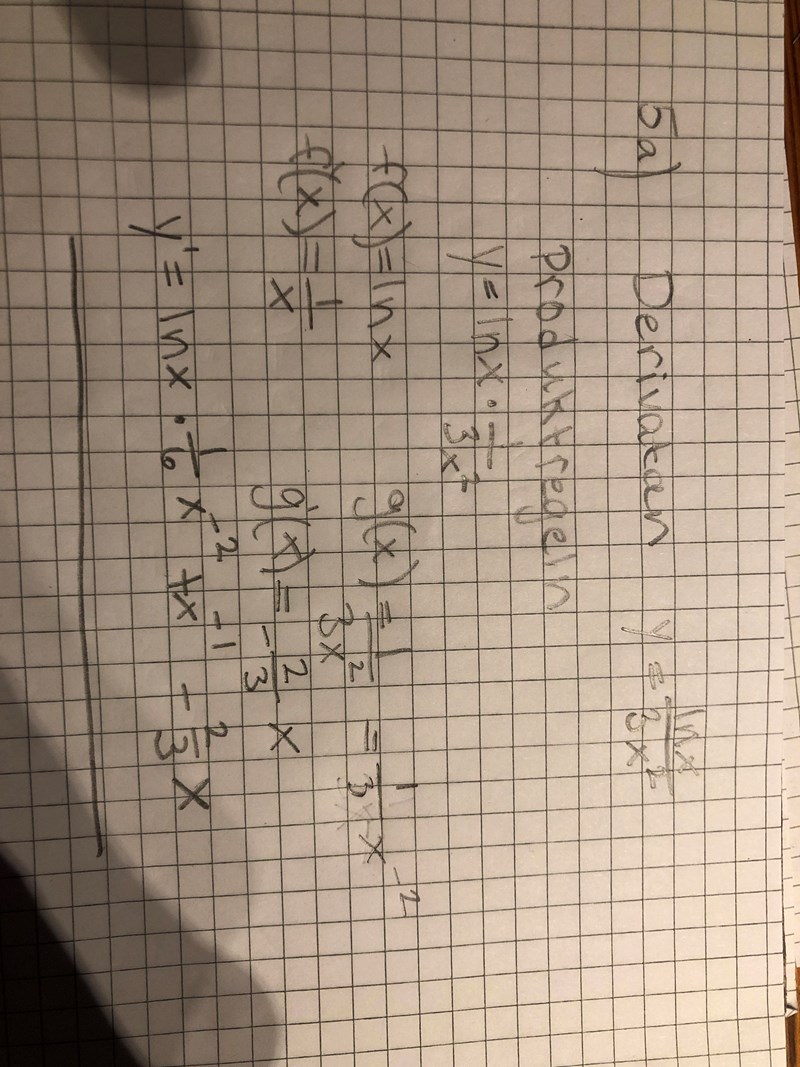 5a) Derivatan y = ln x / 3x²
produktregeln
y = ln x · 1/3x²
f(x) = ln x g(x) = 1/3x² = 1/3 x⁻²
f'(x) = 1/x g'(x) = -2/3 x
y' = ln x · 1/6 x⁻² + x⁻¹ - 2/3 x